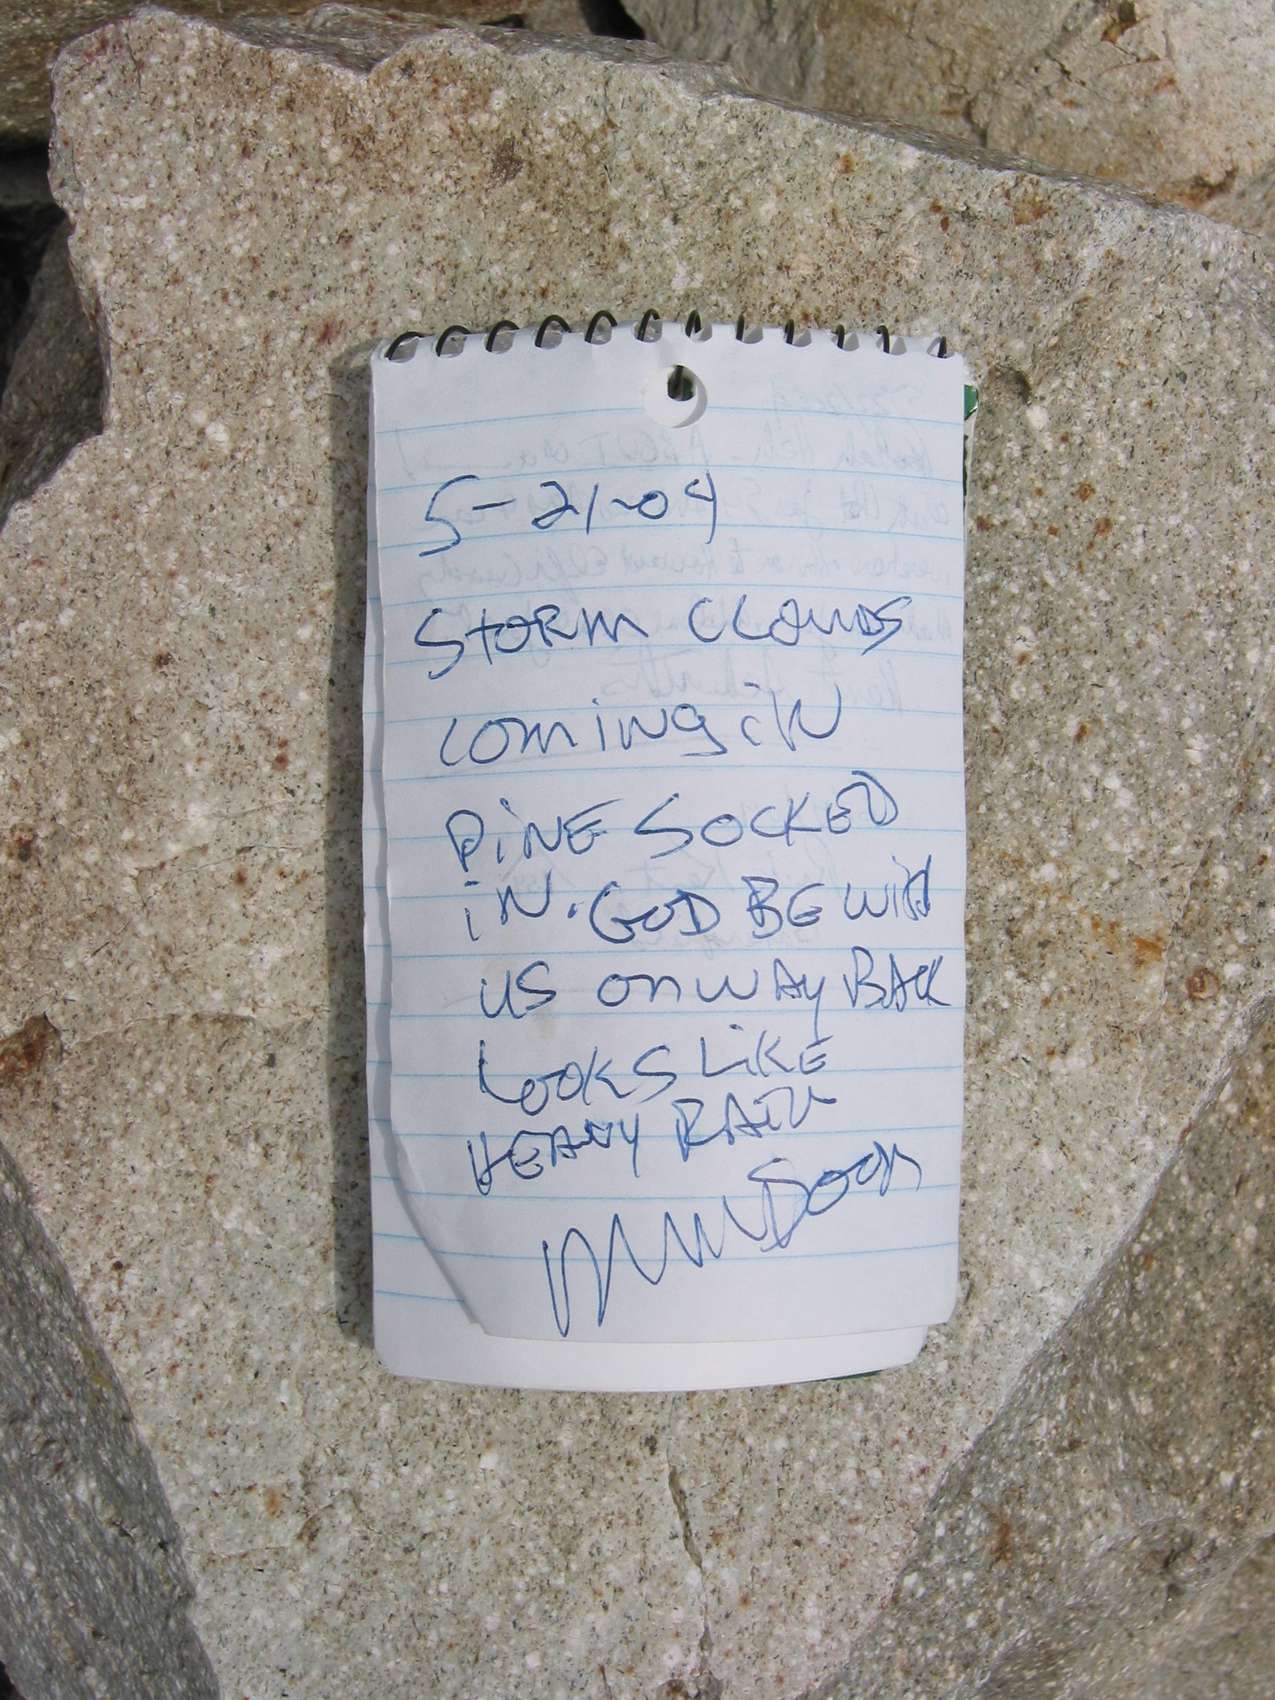 5-21-04
STORM CLOUDS
coming iN
PiNE SOCKED
iN. GOD BE WITH
US ON WAY BACK
LOOKS LiKE
HEAVY RAIN